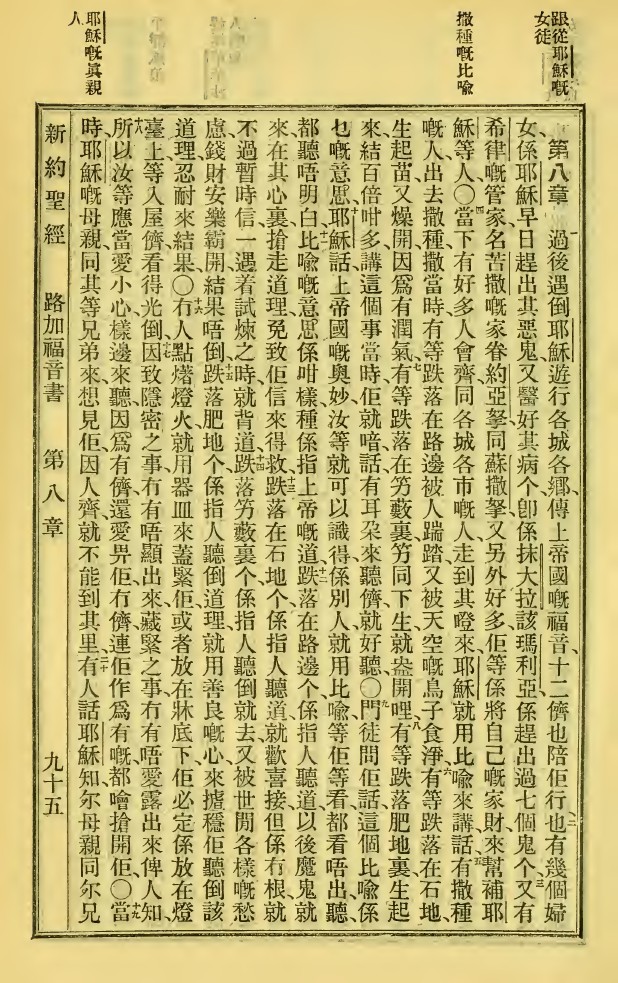 跟從耶穌嘅
女徒
撒種嘅比喩
耶穌嘅眞親
人
第八章 一過後遇倒耶穌遊行各城各鄕、傳上帝國嘅福音、十二儕也陪佢行、二也有幾個婦
女、係耶穌早日趕出其惡鬼、又醫好其病个、卽係抹大拉該瑪利亞、係趕出過七個鬼个、三又有
希律嘅管家名苦撒嘅家眷約亞拏、同蘇撒拏、又另外好多、佢等係將自己嘅家財來幫補耶
穌等人〇四當下有好多人會齊、同各城各市嘅人走到其嶝來、耶穌就用比喩來講話、五有撒種
嘅人出去撒種、撒當時有等跌落在路邊、被人踹踏、又被天空嘅鳥子食淨、六有等跌落在石地、
生起苗又燥開、因爲冇潤氣、七有等跌落在竻藪裏、竻同下生、就盎開哩、八有等跌落肥地裏、生起
來結百倍咁多、講這個事當時、佢就喑話、有耳朶來聽儕就好聽〇九門徒問佢話、這個比喩係
乜嘅意思、十耶穌話、上帝國嘅奧妙、汝等就可以識得、係別人就用比喩、等佢等看都看唔出、聽
都聽唔明白、十一比喩嘅意思係咁樣、種係指上帝嘅道、十二跌落在路邊个、係指人聽道以後、魔鬼就
來在其心裏搶走道理、免致佢信來得救、十三跌落在石地个、係指人聽道、就歡喜接、但係冇根、就
不過暫時信、一遇着試煉之時、就背道、十四跌落竻藪裏个、係指人聽倒就去、又被世間各樣嘅愁
慮錢財安樂霸開、結果唔倒、十五跌落肥地个、係指人聽倒道理、就用善良嘅心來攄穩佢、聽倒該
道理、忍耐來結果〇十六冇人點𤏸燈火、就用器皿來蓋緊佢、或者放在牀底下、佢必定係放在燈
臺上、等入屋儕看得光倒、十七因致隱密之事、冇有唔顯出來、藏緊之事、冇有唔愛露出來俾人知、
十八所以汝等應當愛小心樣邊來聽、因爲有儕還愛畀佢、冇儕連佢作爲有嘅都噲搶開佢〇十九當
時耶穌嘅母親、同其等兄弟來、想見佢、因人齊就不能到其里、二十有人話耶穌知、尔母親同尔兄
新約聖經 路加福音書 第八章 九十五